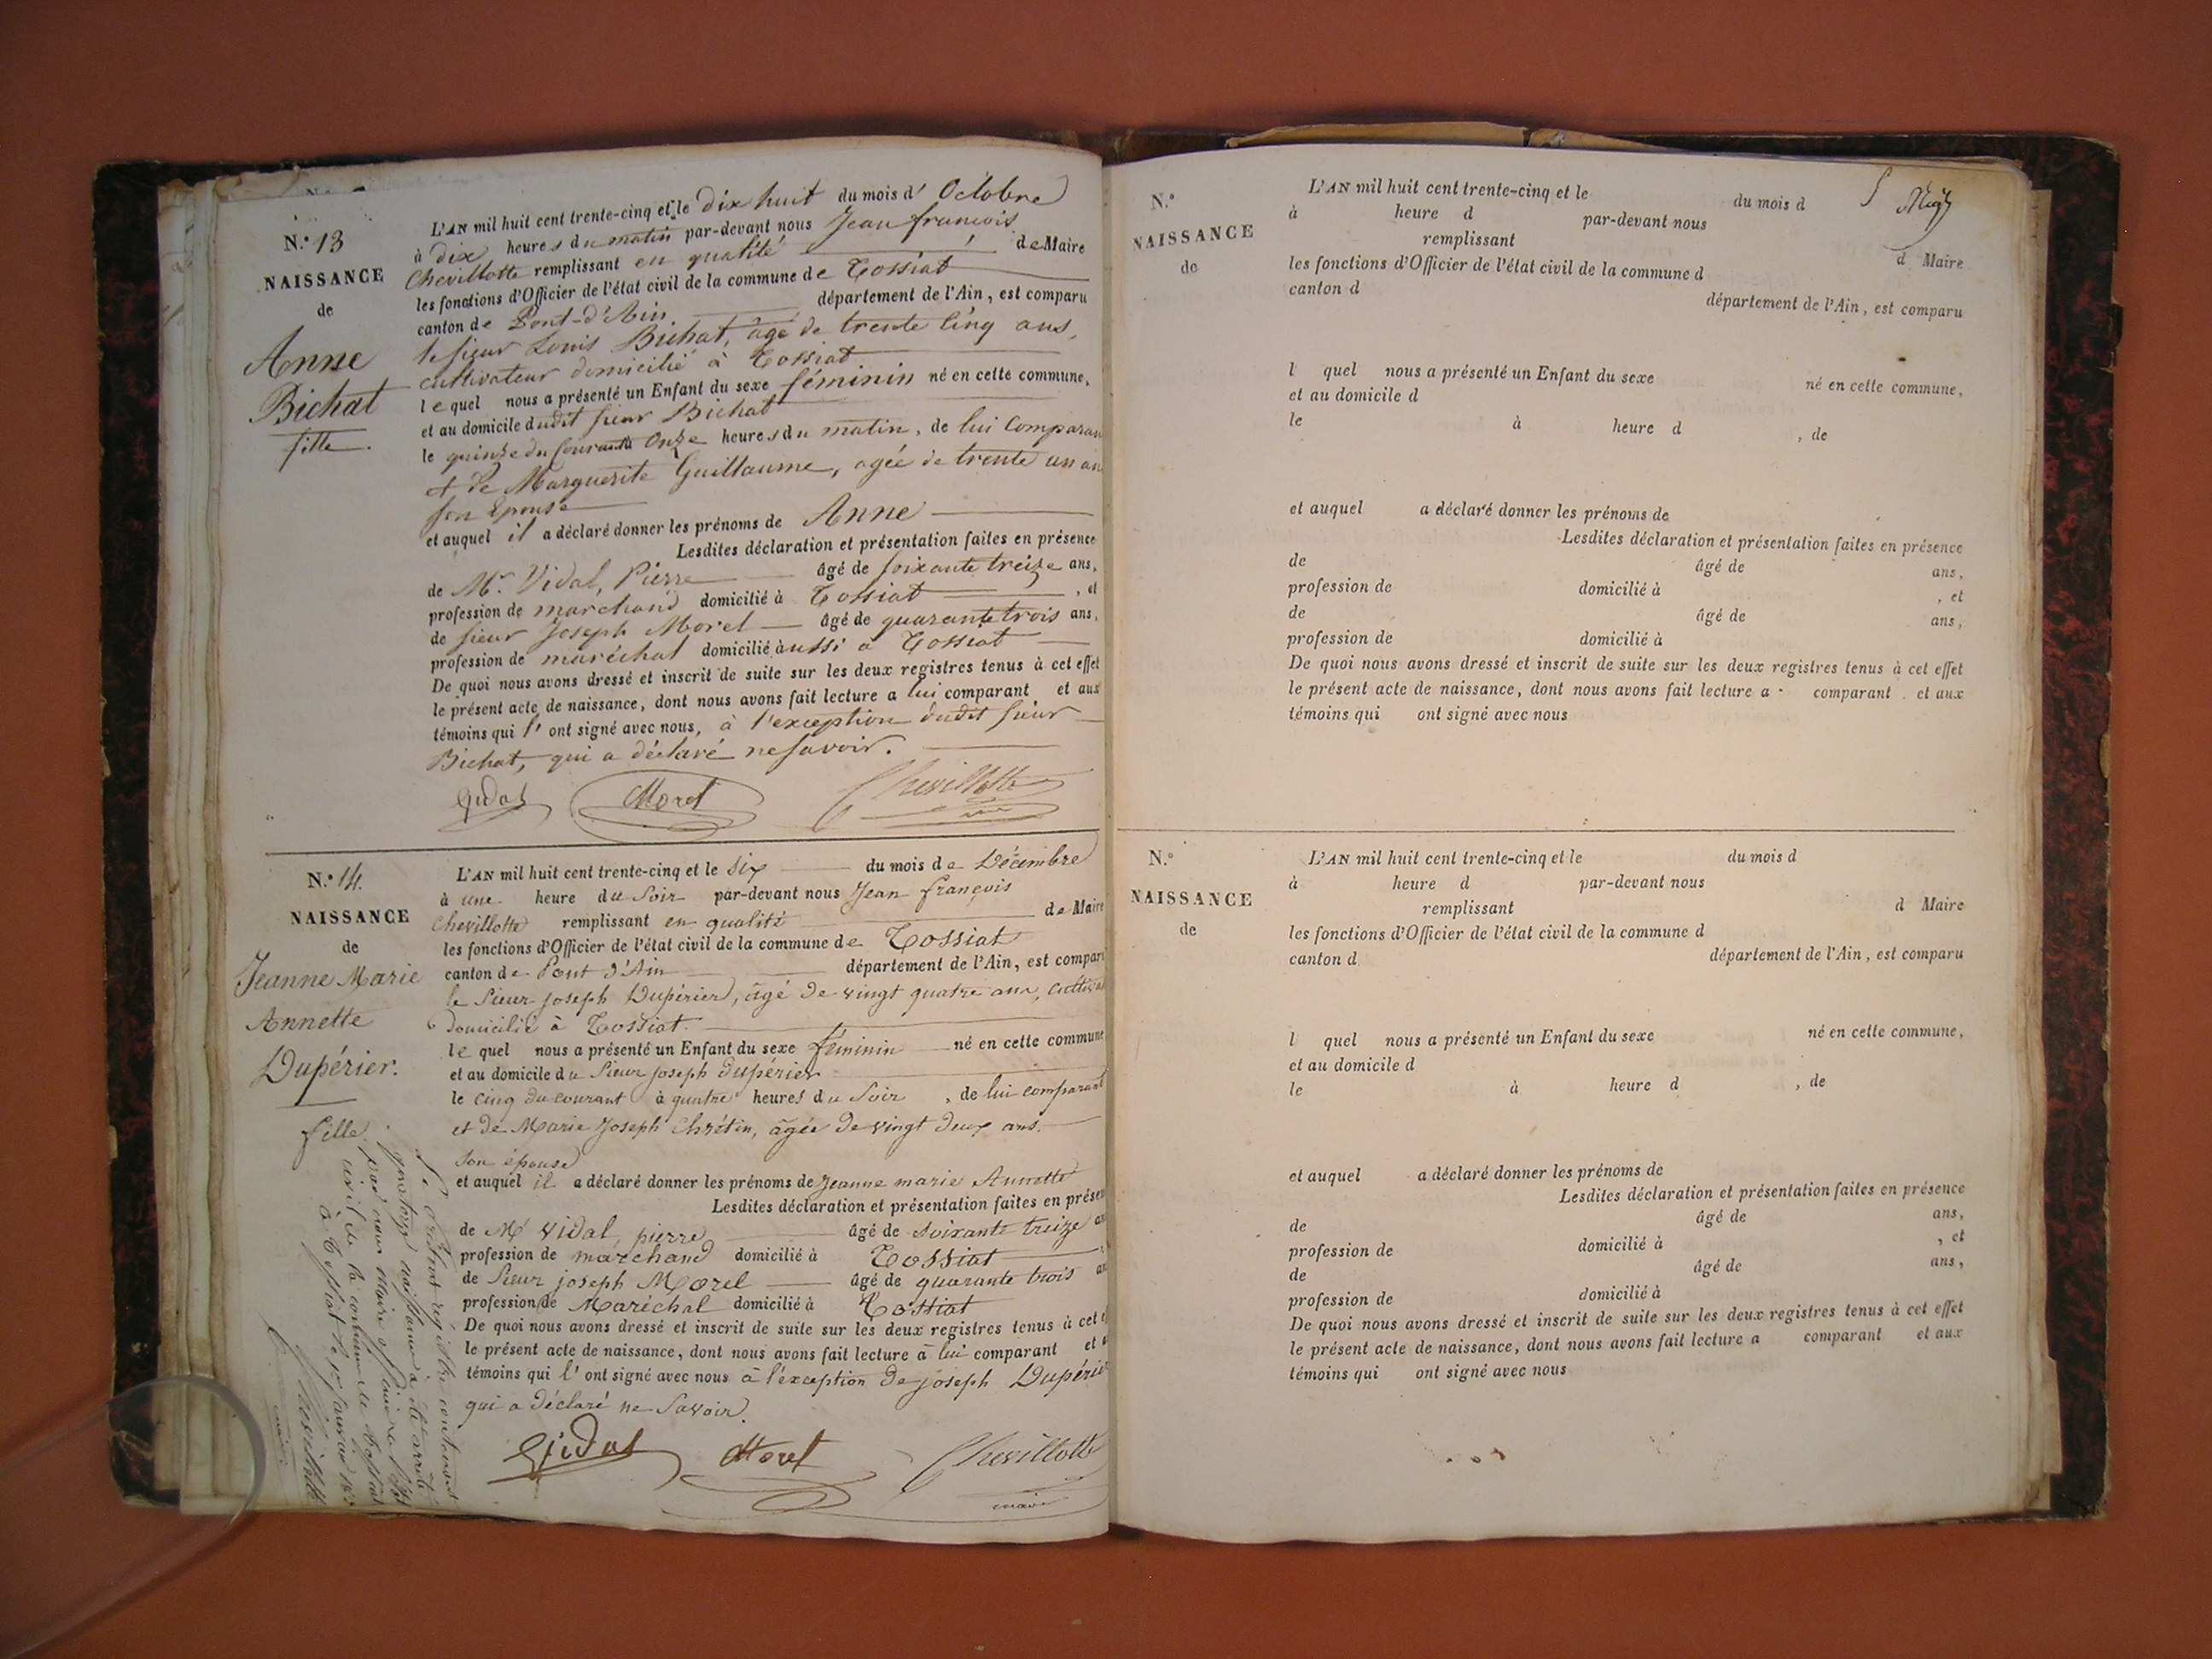 N.° 13
NAISSANCE
de
Anne
Bichat
fille.
L'AN mil huit cent trente-cinq et le dix huit du mois d' Octobre
à dix heures du matin par-devant nous Jean francois
Chevillotte remplissant en qualité de Maire
les fonctions d'Officier de l'état civil de la commune de Tossiat
canton de Pont-d'Ain département de l'Ain, est comparu
le sieur Louis Bichat, âgé de trente cinq ans,
cultivateur domicilié à Tossiat
lequel nous a présenté un Enfant du sexe féminin né en cette commune,
et au domicile dudit sieur Bichat
le quinze du courant à onze heures du matin, de lui comparan
et de Marguerite Guillaume, agée de trente un an
son épouse
et auquel il a déclaré donner les prénoms de Anne
Lesdites déclaration et présentation faites en présence
de Mr. Vidal, Pierre âgé de soixante treize ans,
profession de marchand domicilié à Tossiat , et
de sieur Joseph Morel âgé de quarante trois ans,
profession de maréchal domicilié aussi à Tossiat
De quoi nous avons dressé et inscrit de suite sur les deux registres tenus à cet effet
le présent acte de naissance, dont nous avons fait lecture a lui comparant et aux
témoins qui l' ont signé avec nous, à l'exception dudit sieur
Bichat, qui a déclaré ne savoir.
Vidal Morel Chevillotte
N.° 14.
NAISSANCE
de
Jeanne Marie
Annette
Dupérier.
fille
L'AN mil huit cent trente-cinq et le six du mois de Décembre
à une heure du soir par-devant nous Jean françois
Chevillotte remplissant en qualité de Maire
les fonctions d'Officier de l'état civil de la commune de Tossiat
canton de Pont d'Ain département de l'Ain, est compar
le Sieur joseph Dupérier, âgé de vingt quatre ans, cultiva
domicilié à Tossiat.
lequel nous a présenté un Enfant du sexe féminin né en cette commune
et au domicile du Sieur joseph dupérier
le cinq du courant à quatre heures du Soir , de lui comparant
et de Marie Joseph Chrétin, âgée de vingt deux ans.
Son épouse
et auquel il a déclaré donner les prénoms de Jeanne marie Annette
Lesdites déclaration et présentation faites en présen
de Mr vidal, pierre âgé de soixante treize an
profession de marchand domicilié à Tossiat
de Sieur joseph Morel âgé de quarante trois an
profession de Maréchal domicilié à Tossiat
De quoi nous avons dressé et inscrit de suite sur les deux registres tenus à cet e
le présent acte de naissance, dont nous avons fait lecture à lui comparant et
témoins qui l' ont signé avec nous à l'exception de joseph Dupérier
qui a déclaré ne Savoir.
Vidal Morel Chevillotte
maire
Le présent registre contenant
quatorze naissances a été arrêté
par nous Maire officier de l'état
civil de la commune de Tossiat
à Tossiat le janvier
Chevillotte
maire
N.°
NAISSANCE
de
L'AN mil huit cent trente-cinq et le du mois d
à heure d par-devant nous
remplissant d Maire
les fonctions d'Officier de l'état civil de la commune d
canton d département de l'Ain, est comparu
l quel nous a présenté un Enfant du sexe né en cette commune,
et au domicile d
le à heure d , de
et auquel a déclaré donner les prénoms de
Lesdites déclaration et présentation faites en présence
de âgé de ans,
profession de domicilié à , et
de âgé de ans,
profession de domicilié à
De quoi nous avons dressé et inscrit de suite sur les deux registres tenus à cet effet
le présent acte de naissance, dont nous avons fait lecture a comparant et aux
témoins qui ont signé avec nous
N.°
NAISSANCE
de
L'AN mil huit cent trente-cinq et le du mois d
à heure d par-devant nous
remplissant d Maire
les fonctions d'Officier de l'état civil de la commune d
canton d département de l'Ain, est comparu
l quel nous a présenté un Enfant du sexe né en cette commune,
et au domicile d
le à heure d , de
et auquel a déclaré donner les prénoms de
Lesdites déclaration et présentation faites en présence
de âgé de ans,
profession de domicilié à , et
de âgé de ans,
profession de domicilié à
De quoi nous avons dressé et inscrit de suite sur les deux registres tenus à cet effet
le présent acte de naissance, dont nous avons fait lecture a comparant et aux
témoins qui ont signé avec nous